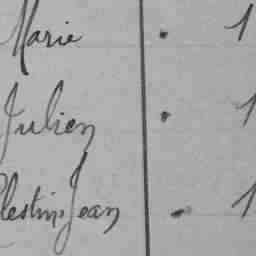 Marie . 1
Julien . 1
lestin Jean . 1